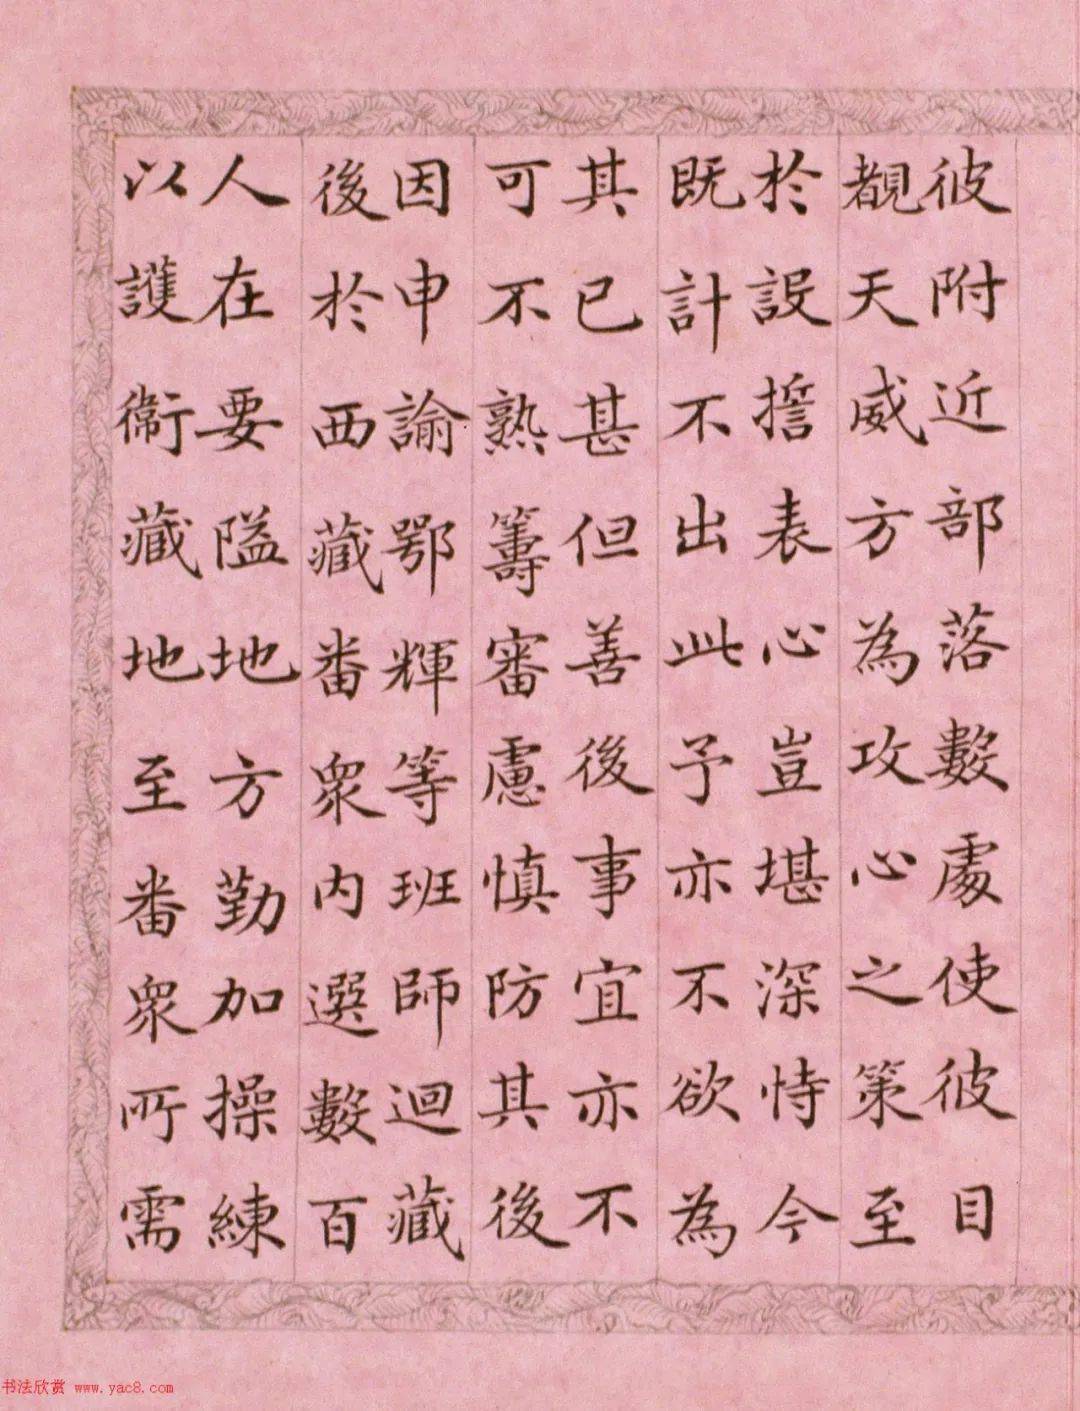 彼附近部落數處使彼目
覩天威方為攻心之策至
於設擔表心豈堪深恃今
既計不出此予亦不欲為
其已甚但善後事宜亦不
可不熟籌審慮慎防其後
因申諭鄂輝等班師迴藏
後於西藏番眾內選數百
人在要隘地方勤加操練
以護衞藏地至番眾所需
书法欣赏 www.yac8.com